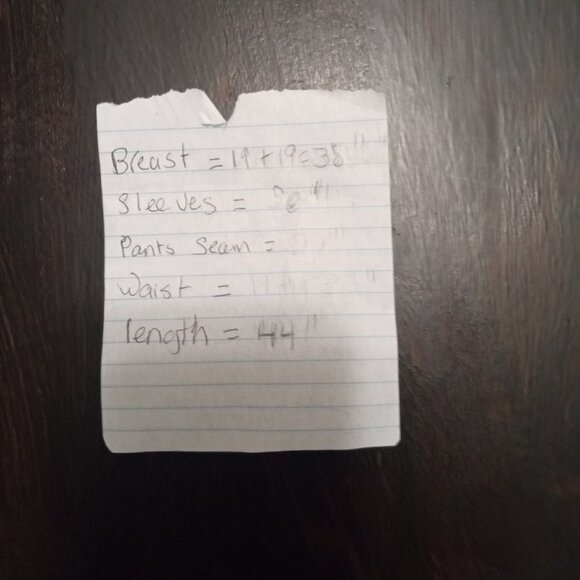 Breast = 19 + 19 = 38"
Sleeves =
Pants Seam =
Waist =
length = 44"